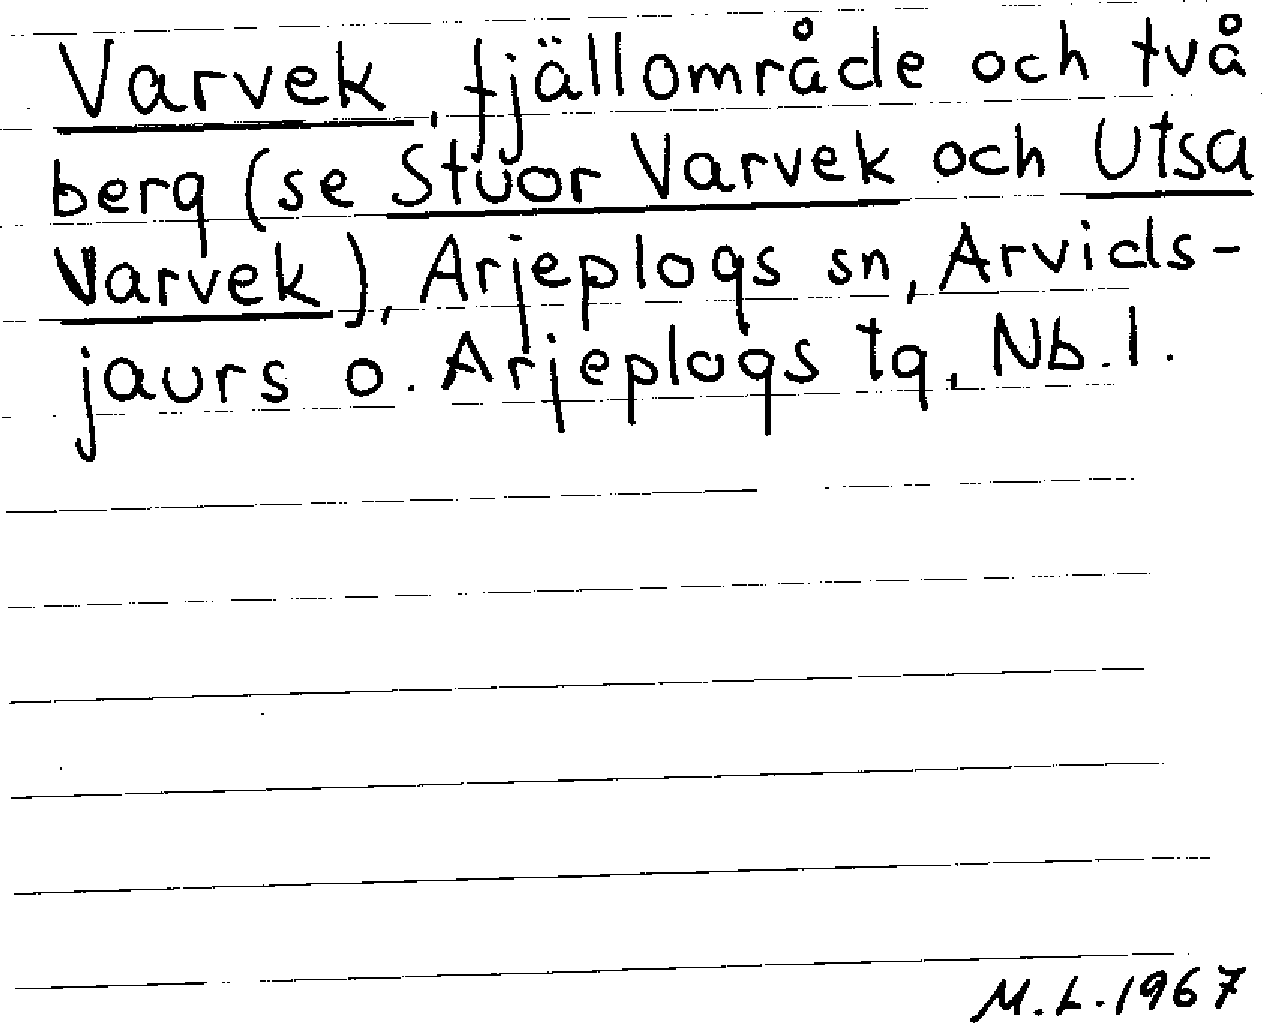 Varvek, fjällområde och två
berg (se Stuor Varvek och Utsa
Varvek), Arjeplogs sn, Arvids-
jaurs o. Arjeplogs tg, Nb. l.
M.L. 1967